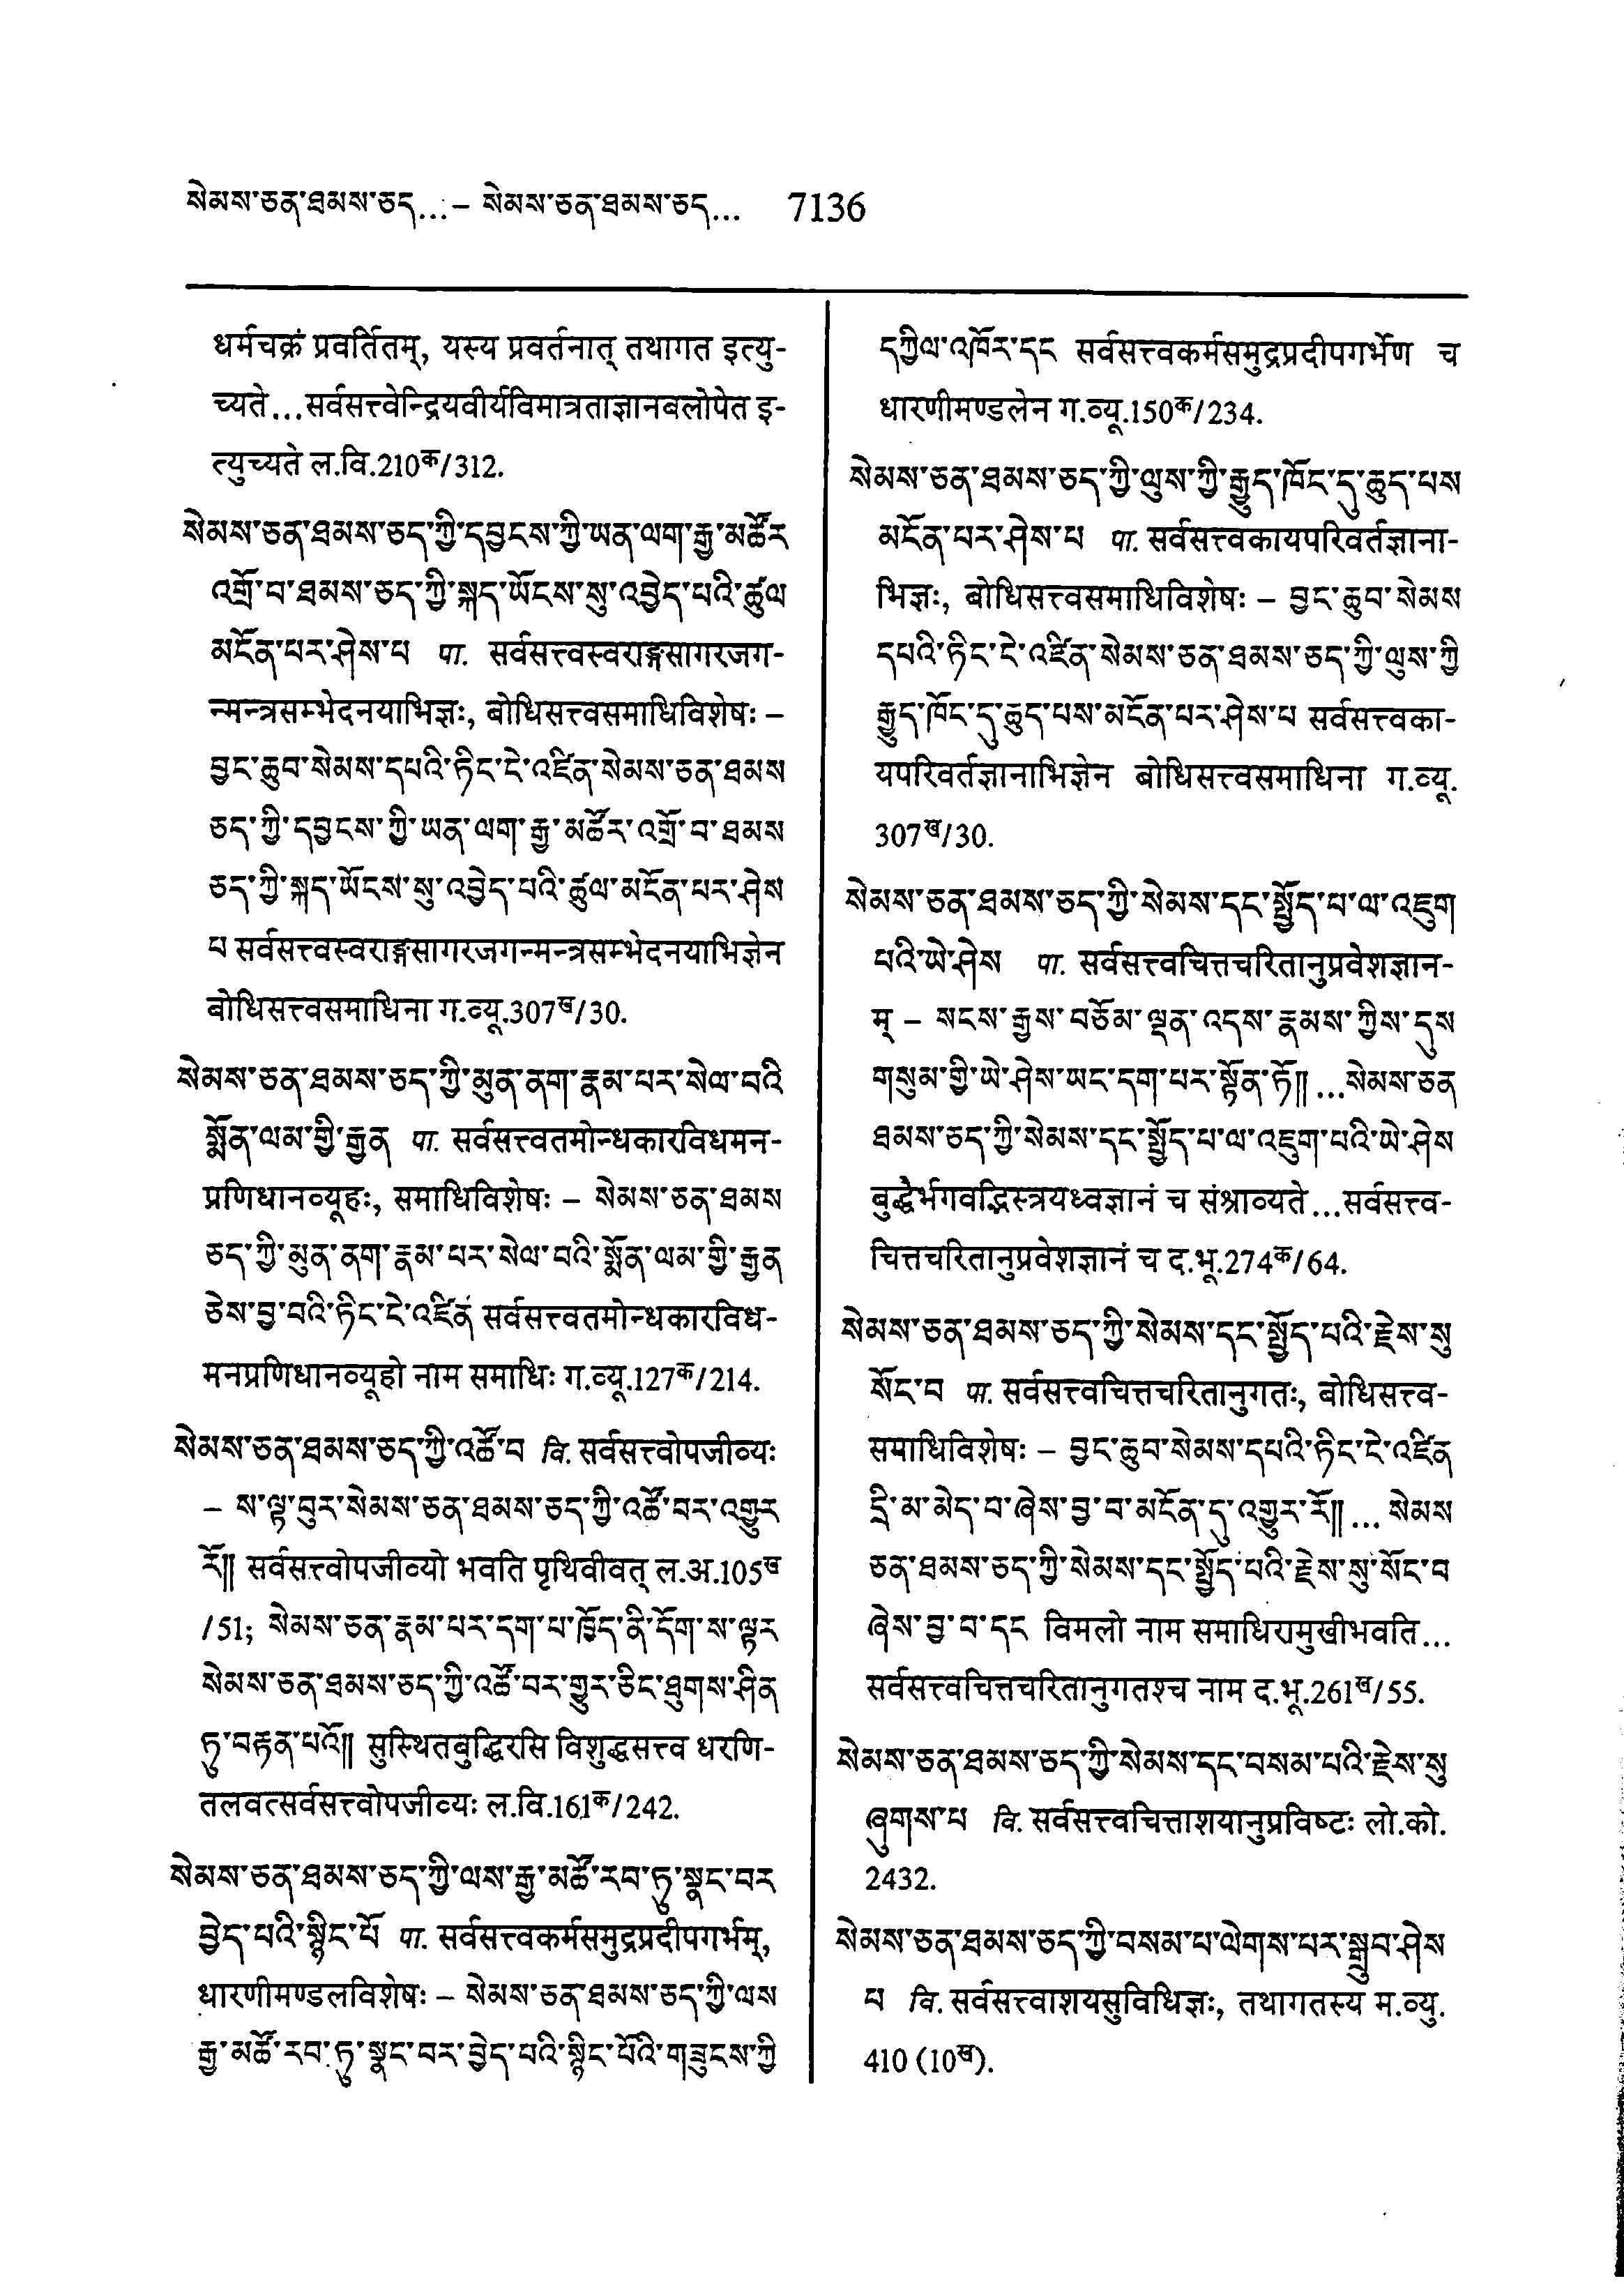 སེམས་ཅན་ཐམས་ཅད...– སེམས་ཅན་ཐམས་ཅད... 7136
धर्मचक्रं प्रवर्तितम्, यस्य प्रवर्तनात् तथागत इत्यु-
च्यते...सर्वसत्त्वेन्द्रियवीर्यविमात्रताज्ञानबलोपेत इ-
त्युच्यते ल.वि.210क/312.
སེམས་ཅན་ཐམས་ཅད་ཀྱི་དབྱངས་ཀྱི་ཡན་ལག་རྒྱ་མཚོར
འགྲོ་བ་ཐམས་ཅད་ཀྱི་སྐད་ཡོངས་སུ་འབྱེད་པའི་ཚུལ
མངོན་པར་ཤེས་པ पा. सर्वसत्त्वस्वराङ्गसागरजग-
न्मन्त्रसम्भेदनयाभिज्ञः, बोधिसत्त्वसमाधिविशेषः –
བྱང་ཆུབ་སེམས་དཔའི་ཏིང་ངེ་འཛིན་སེམས་ཅན་ཐམས
ཅད་ཀྱི་དབྱངས་ཀྱི་ཡན་ལག་རྒྱ་མཚོར་འགྲོ་བ་ཐམས
ཅད་ཀྱི་སྐད་ཡོངས་སུ་འབྱེད་པའི་ཚུལ་མངོན་པར་ཤེས
པ सर्वसत्त्वस्वराङ्गसागरजगन्मन्त्रसम्भेदनयाभिज्ञेन
बोधिसत्त्वसमाधिना ग.व्यू.307ख/30.
སེམས་ཅན་ཐམས་ཅད་ཀྱི་མུན་ནག་རྣམ་པར་སེལ་བའི
སྨོན་ལམ་གྱི་རྒྱན पा. सर्वसत्त्वतमोन्धकारविधमन-
प्रणिधानव्यूहः, समाधिविशेषः – སེམས་ཅན་ཐམས
ཅད་ཀྱི་མུན་ནག་རྣམ་པར་སེལ་བའི་སྨོན་ལམ་གྱི་རྒྱན
ཅེས་བྱ་བའི་ཏིང་ངེ་འཛིན सर्वसत्त्वतमोन्धकारविध-
मनप्रणिधानव्यूहो नाम समाधिः ग.व्यू.127क/214.
སེམས་ཅན་ཐམས་ཅད་ཀྱི་འཚོ་བ वि. सर्वसत्त्वोपजीव्यः
– ས་ལྟ་བུར་སེམས་ཅན་ཐམས་ཅད་ཀྱི་འཚོ་བར་འགྱུར
རོ༎ सर्वसत्त्वोपजीव्यो भवति पृथिवीवत् ल.अ.105ख
/51; སེམས་ཅན་རྣམ་པར་དག་པ་ཁྱོད་ནི་དོག་ས་ལྟར
སེམས་ཅན་ཐམས་ཅད་ཀྱི་འཚོ་བར་གྱུར་ཅིང་ཐུགས་ཤིན
ཏུ་བརྟན་པའོ༎ सुस्थितबुद्धिरसि विशुद्धसत्त्व धरणि-
तलवत्सर्वसत्त्वोपजीव्यः ल.वि.161क/242.
སེམས་ཅན་ཐམས་ཅད་ཀྱི་ལས་རྒྱ་མཚོ་རབ་ཏུ་སྣང་བར
བྱེད་པའི་སྙིང་པོ पा. सर्वसत्त्वकर्मसमुद्रप्रदीपगर्भम्,
धारणीमण्डलविशेषः – སེམས་ཅན་ཐམས་ཅད་ཀྱི་ལས
རྒྱ་མཚོ་རབ་ཏུ་སྣང་བར་བྱེད་པའི་སྙིང་པོའི་གཟུངས་ཀྱི
དཀྱིལ་འཁོར་དང सर्वसत्त्वकर्मसमुद्रप्रदीपगर्भेण च
धारणीमण्डलेन ग.व्यू.150क/234.
སེམས་ཅན་ཐམས་ཅད་ཀྱི་ལུས་ཀྱི་རྒྱུད་ཁོང་དུ་ཆུད་པས
མངོན་པར་ཤེས་པ पा. सर्वसत्त्वकायपरिवर्तज्ञाना-
भिज्ञः, बोधिसत्त्वसमाधिविशेषः – བྱང་ཆུབ་སེམས
དཔའི་ཏིང་ངེ་འཛིན་སེམས་ཅན་ཐམས་ཅད་ཀྱི་ལུས་ཀྱི
རྒྱུད་ཁོང་དུ་ཆུད་པས་མངོན་པར་ཤེས་པ सर्वसत्त्वका-
यपरिवर्तज्ञानाभिज्ञेन बोधिसत्त्वसमाधिना ग.व्यू.
307ख/30.
སེམས་ཅན་ཐམས་ཅད་ཀྱི་སེམས་དང་སྤྱོད་པ་ལ་འཇུག
པའི་ཡེ་ཤེས पा. सर्वसत्त्वचित्तचरितानुप्रवेशज्ञान-
म् – སངས་རྒྱས་བཅོམ་ལྡན་འདས་རྣམས་ཀྱིས་དུས
གསུམ་གྱི་ཡེ་ཤེས་ཡང་དག་པར་སྟོན་ཏོ༎...སེམས་ཅན
ཐམས་ཅད་ཀྱི་སེམས་དང་སྤྱོད་པ་ལ་འཇུག་པའི་ཡེ་ཤེས
बुद्धैर्भगवद्भिस्त्रयध्वज्ञानं च संश्राव्यते...सर्वसत्त्व-
चित्तचरितानुप्रवेशज्ञानं च द.भू.274क/64.
སེམས་ཅན་ཐམས་ཅད་ཀྱི་སེམས་དང་སྤྱོད་པའི་རྗེས་སུ
སོང་བ पा. सर्वसत्त्वचित्तचरितानुगतः, बोधिसत्त्व-
समाधिविशेषः – བྱང་ཆུབ་སེམས་དཔའི་ཏིང་ངེ་འཛིན
དྲི་མ་མེད་པ་ཞེས་བྱ་བ་མངོན་དུ་འགྱུར་རོ༎... སེམས
ཅན་ཐམས་ཅད་ཀྱི་སེམས་དང་སྤྱོད་པའི་རྗེས་སུ་སོང་བ
ཞེས་བྱ་བ་དང विमलो नाम समाधिरामुखीभवति...
सर्वसत्त्वचित्तचरितानुगतश्च नाम द.भू.261ख/55.
སེམས་ཅན་ཐམས་ཅད་ཀྱི་སེམས་དང་བསམ་པའི་རྗེས་སུ
ཞུགས་པ वि. सर्वसत्त्वचित्ताशयानुप्रविष्टः लो.को.
2432.
སེམས་ཅན་ཐམས་ཅད་ཀྱི་བསམ་པ་ལེགས་པར་སྒྲུབ་ཤེས
པ वि. सर्वसत्त्वाशयसुविधिज्ञः, तथागतस्य म.व्यु.
410 (10ख).